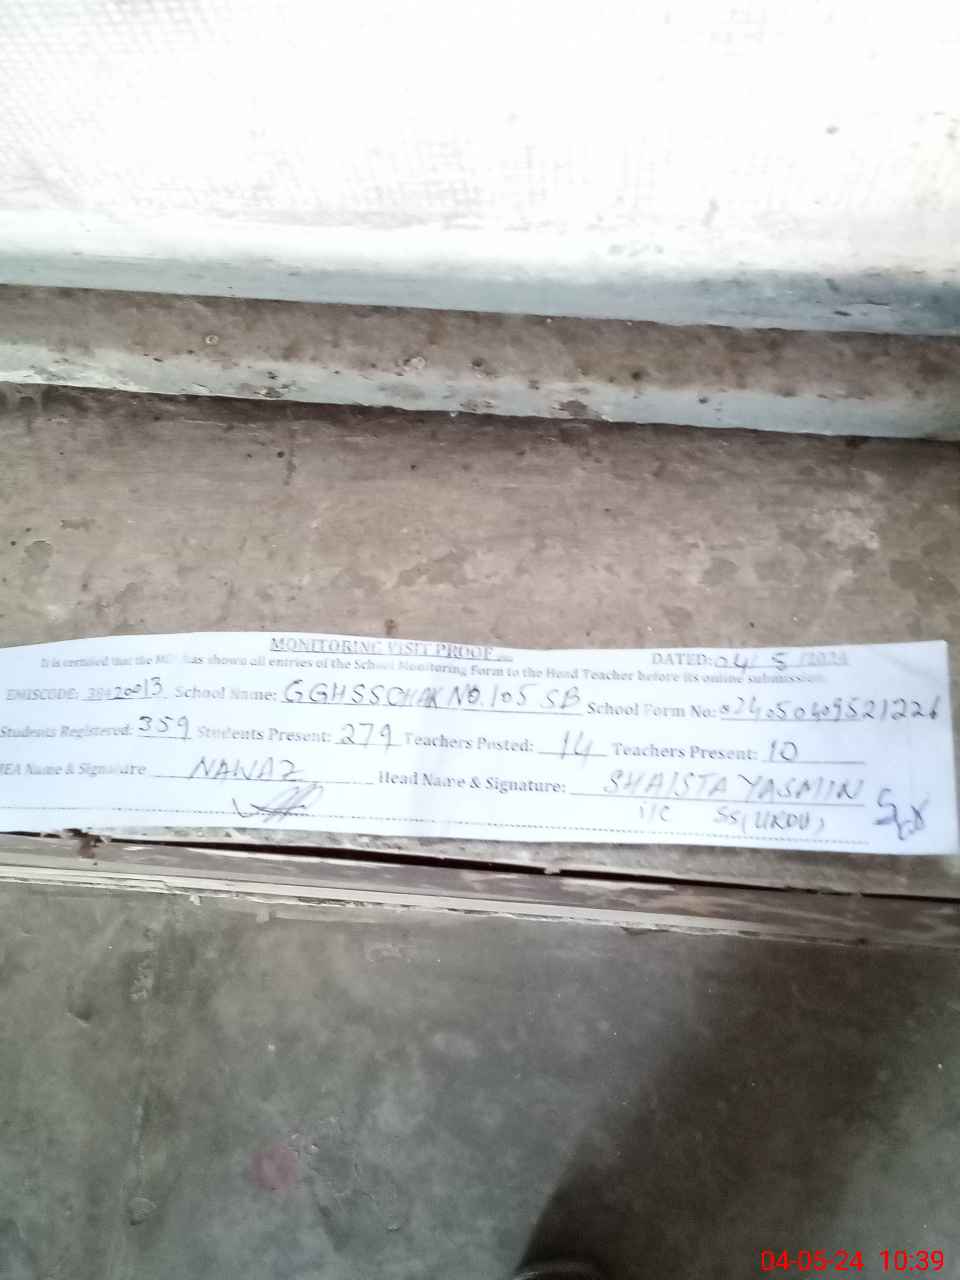 MONITORING VISIT PROOF
DATED: 04/5/2024
It is certified that the has shown all entries of the School Monitoring Form to the Head Teacher before its online submission.
EMISCODE: 38420013 School Name: GGHSSCHAK NO.105 SB School Form No:
Students Registered: 359 Students Present: 279 Teachers Posted: 14 Teachers Present: 10
MEA Name & Signature NAWAZ Head Name & Signature: SHAISTA YASMIN
I/C SS(URDU)
04-05-24 10:39